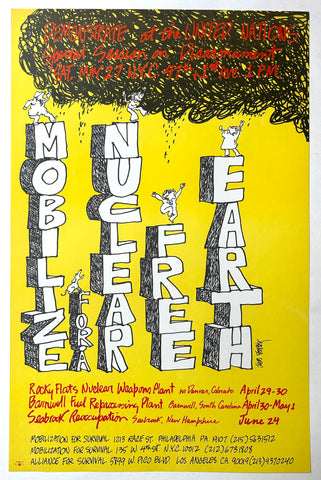 DEMONSTRATE at the UNITED NATIONS
Special Session on Disarmament
SAT. MAY 27 N.Y.C. 47th & 1st Ave 1 P.M.
MOBILIZE
FOR A
NUCLEAR
FREE
EARTH
Rocky Flats Nuclear Weapons Plant nr Denver, Colorado April 29-30
Barnwell Fuel Reprocessing Plant Barnwell, South Carolina April 30-May 1
Seabrook Reoccupation Seabrook, New Hampshire June 24
MOBILIZATION FOR SURVIVAL 1213 RACE ST. PHILADELPHIA PA. 19107 (215) 563 1512
MOBILIZATION FOR SURVIVAL 135 W. 4th ST N.Y.C. 10012 (212) 673 1808
ALLIANCE FOR SURVIVAL 5899 W. PICO BLVD. LOS ANGELES CA 90019 (213) 937 0240